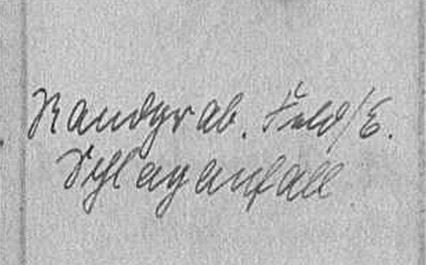 Randgrab. Feld/E.
Schlaganfall